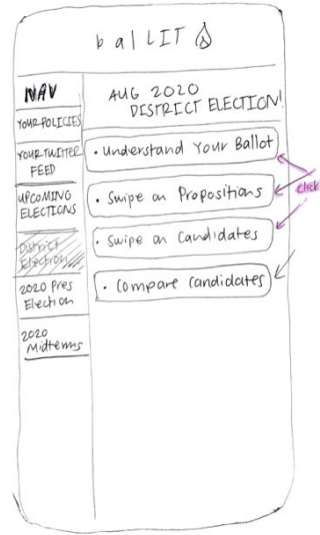 ballIT
NAV
YOUR POLICIES
YOUR TWITTER
FEED
UPCOMING
ELECTIONS
District
Election
2020 Pres
Election
2020
Midterms
AUG 2020
DISTRICT ELECTION!
• Understand Your Ballot
• Swipe on Propositions
• Swipe on Candidates
• Compare Candidates
click